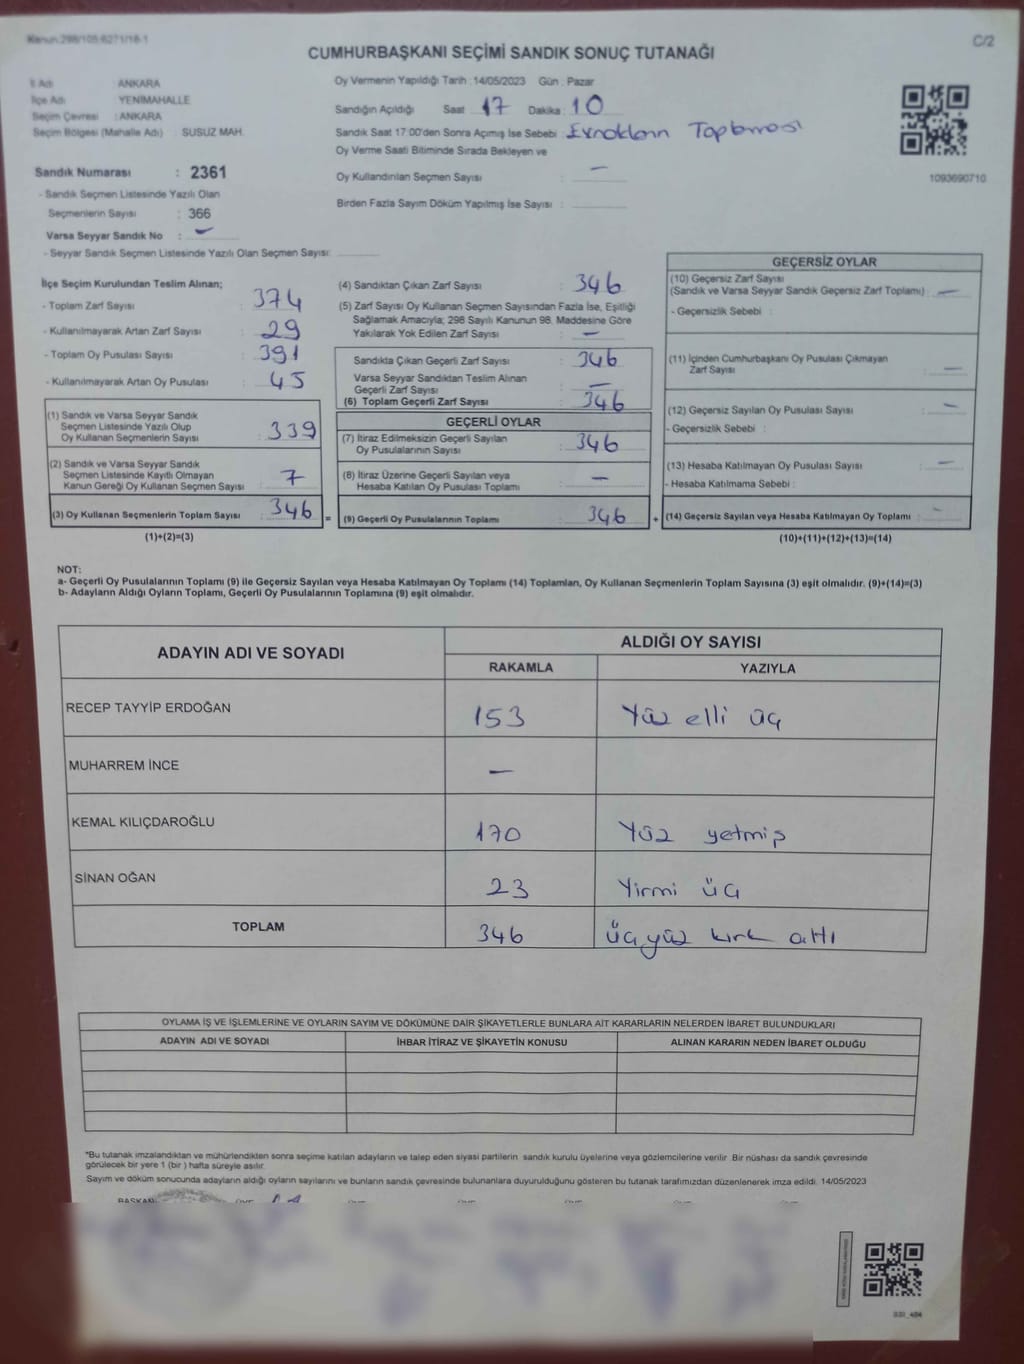 Kanun:298/105-6271/18-1
C/2
CUMHURBAŞKANI SEÇİMİ SANDIK SONUÇ TUTANAĞI
İl Adı : ANKARA
İlçe Adı : YENİMAHALLE
Seçim Çevresi : ANKARA
Seçim Bölgesi (Mahalle Adı) : SUSUZ MAH.
Sandık Numarası : 2361
- Sandık Seçmen Listesinde Yazılı Olan
Seçmenlerin Sayısı : 366
Varsa Seyyar Sandık No : -
- Seyyar Sandık Seçmen Listesinde Yazılı Olan Seçmen Sayısı:
Oy Vermenin Yapıldığı Tarih :14/05/2023 Gün : Pazar
Sandığın Açıldığı Saat 17 Dakika : 10
Sandık Saat 17:00'den Sonra Açımış İse Sebebi : Evrakların Toplaması
Oy Verme Saati Bitiminde Sırada Bekleyen ve
Oy Kullandırılan Seçmen Sayısı : -
Birden Fazla Sayım Döküm Yapılmış İse Sayısı :
1093690710
İlçe Seçim Kurulundan Teslim Alınan;
- Toplam Zarf Sayısı : 374
- Kullanılmayarak Artan Zarf Sayısı : 29
- Toplam Oy Pusulası Sayısı : 391
- Kullanılmayarak Artan Oy Pusulası : 45
(1) Sandık ve Varsa Seyyar Sandık
Seçmen Listesinde Yazılı Olup
Oy Kullanan Seçmenlerin Sayısı : 339
(2) Sandık ve Varsa Seyyar Sandık
Seçmen Listesinde Kayıtlı Olmayan
Kanun Gereği Oy Kullanan Seçmen Sayısı : 7
(3) Oy Kullanan Seçmenlerin Toplam Sayısı : 346 =
(1)+(2)=(3)
(4) Sandıktan Çıkan Zarf Sayısı : 346
(5) Zarf Sayısı Oy Kullanan Seçmen Sayısından Fazla İse, Eşitliği
Sağlamak Amacıyla; 298 Sayılı Kanunun 98. Maddesine Göre
Yakılarak Yok Edilen Zarf Sayısı : -
Sandıkta Çıkan Geçerli Zarf Sayısı : 346
Varsa Seyyar Sandıktan Teslim Alınan
Geçerli Zarf Sayısı : -
(6) Toplam Geçerli Zarf Sayısı : 346
GEÇERLİ OYLAR
(7) İtiraz Edilmeksizin Geçerli Sayılan
Oy Pusulalarının Sayısı : 346
(8) İtiraz Üzerine Geçerli Sayılan veya
Hesaba Katılan Oy Pusulası Toplamı : -
(9) Geçerli Oy Pusulalarının Toplamı : 346 +
GEÇERSİZ OYLAR
(10) Geçersiz Zarf Sayısı
(Sandık ve Varsa Seyyar Sandık Geçersiz Zarf Toplamı) : -
- Geçersizlik Sebebi :
(11) İçinden Cumhurbaşkanı Oy Pusulası Çıkmayan
Zarf Sayısı : -
(12) Geçersiz Sayılan Oy Pusulası Sayısı : -
- Geçersizlik Sebebi :
(13) Hesaba Katılmayan Oy Pusulası Sayısı : -
- Hesaba Katılmama Sebebi :
(14) Geçersiz Sayılan veya Hesaba Katılmayan Oy Toplamı : -
(10)+(11)+(12)+(13)=(14)
NOT:
a- Geçerli Oy Pusulalarının Toplamı (9) ile Geçersiz Sayılan veya Hesaba Katılmayan Oy Toplamı (14) Toplamları, Oy Kullanan Seçmenlerin Toplam Sayısına (3) eşit olmalıdır. (9)+(14)=(3)
b- Adayların Aldığı Oyların Toplamı, Geçerli Oy Pusulalarının Toplamına (9) eşit olmalıdır.
ADAYIN ADI VE SOYADI ALDIĞI OY SAYISI
RAKAMLA YAZIYLA
RECEP TAYYİP ERDOĞAN 153 Yüz elli üç
MUHARREM İNCE -
KEMAL KILIÇDAROĞLU 170 Yüz yetmiş
SİNAN OĞAN 23 Yirmi üç
TOPLAM 346 üçyüz kırk altı
OYLAMA İŞ VE İŞLEMLERİNE VE OYLARIN SAYIM VE DÖKÜMÜNE DAİR ŞİKAYETLERLE BUNLARA AİT KARARLARIN NELERDEN İBARET BULUNDUKLARI
ADAYIN ADI VE SOYADI İHBAR İTİRAZ VE ŞİKAYETİN KONUSU ALINAN KARARIN NEDEN İBARET OLDUĞU
*Bu tutanak imzalandıktan ve mühürlendikten sonra seçime katılan adayların ve talep eden siyasi partilerin sandık kurulu üyelerine veya gözlemcilerine verilir. Bir nüshası da sandık çevresinde
görülecek bir yere 1 (bir) hafta süreyle asılır.
Sayım ve döküm sonucunda adayların aldığı oyların sayılarını ve bunların sandık çevresinde bulunanlara duyurulduğunu gösteren bu tutanak tarafımızdan düzenlenerek imza edildi. 14/05/2023
BAŞKAN